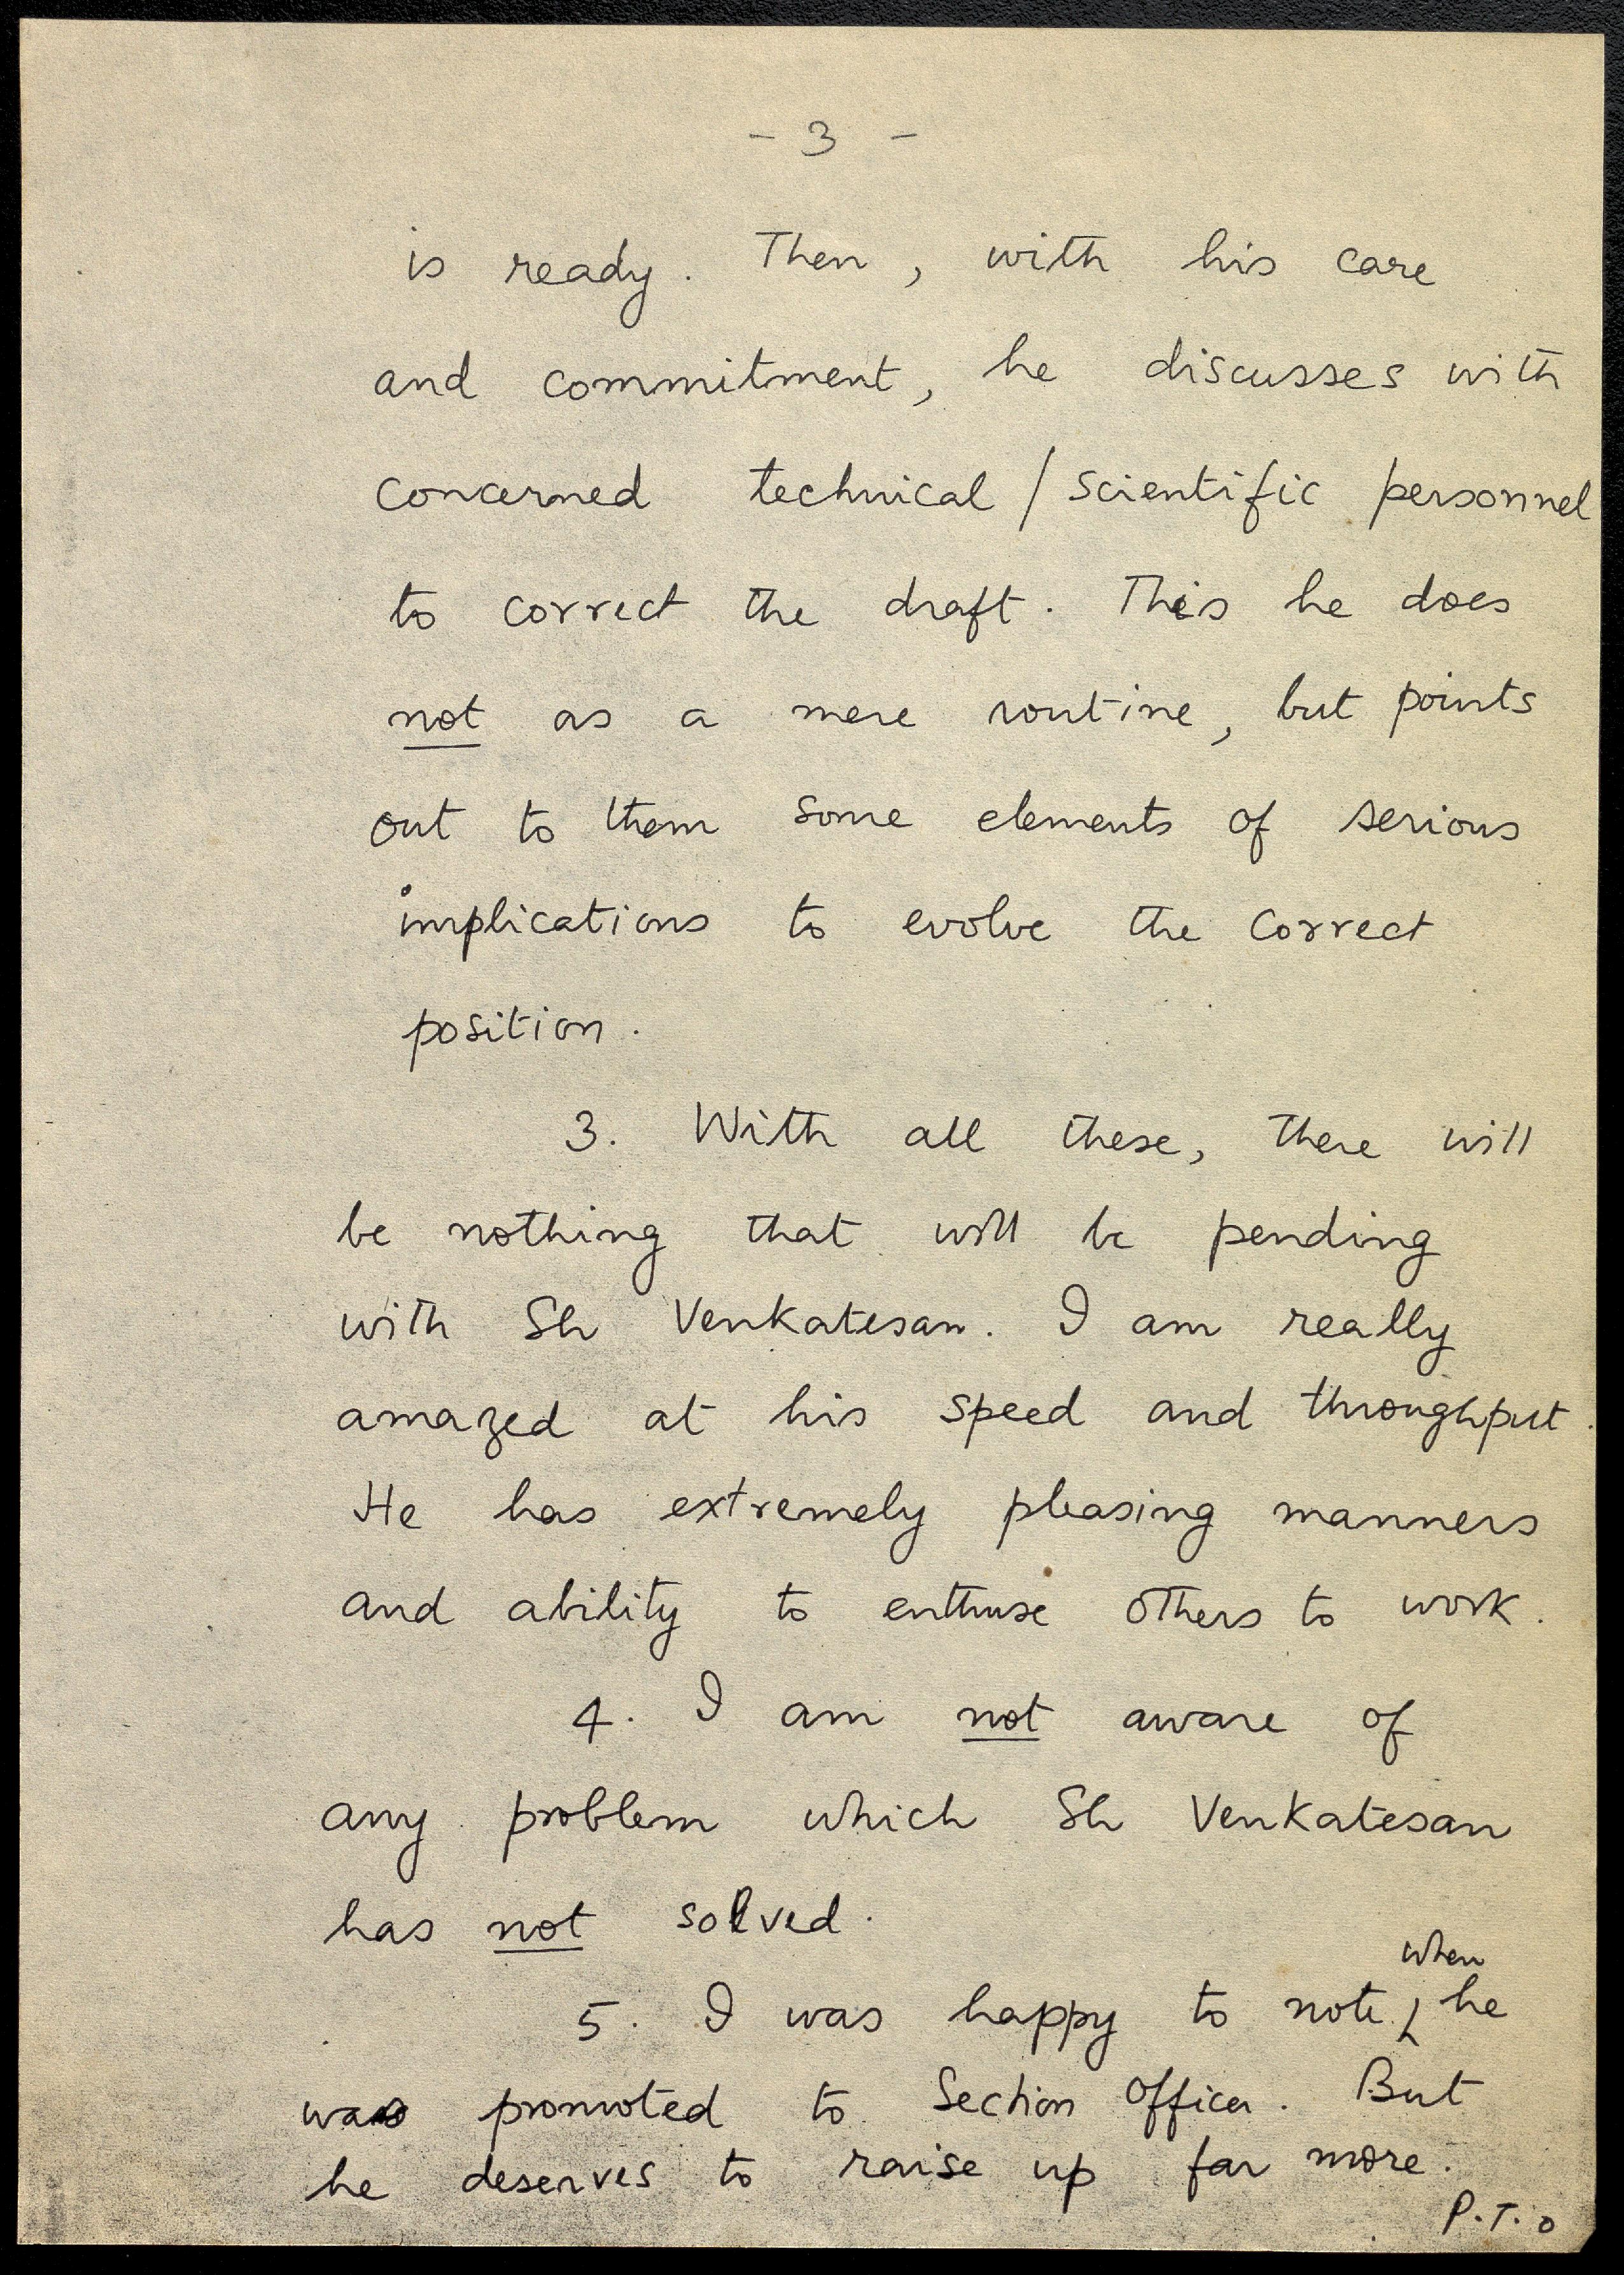 - 3 -
is ready. Then, with his care
and commitment, he discusses with
concerned technical / scientific personnel
to correct the draft. This he does
not as a mere routine, but points
out to them some elements of serious
implications to evolve the correct
position.
3. With all these, there will
be nothing that will be pending
with Sh Venkatesan. I am really
amazed at his speed and throughput.
He has extremely pleasing manners
and ability to enthuse others to work.
4. I am not aware of
any problem which Sh Venkatesan
has not solved.
when
5. I was happy to note, he
was promoted to Section Officer. But
he deserves to raise up far more.
P.T.O